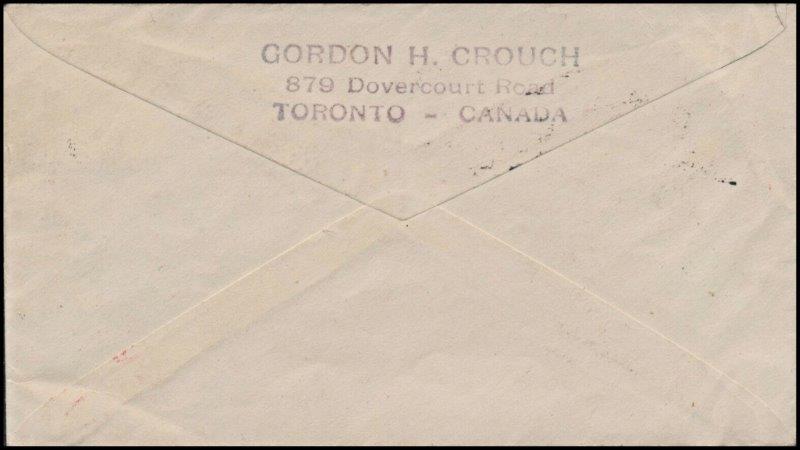 GORDON H. CROUCH
879 Dovercourt Road
TORONTO - CANADA